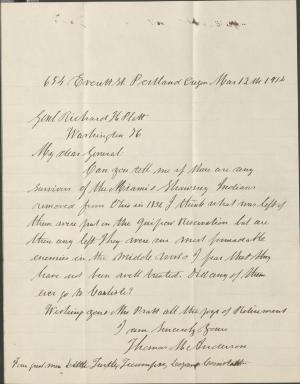 654 Everett St. Portland Oregn Mar 12th 1914
Genl Richard H Pratt
Washington DC
My dear General
Can you tell me if there are any
survivors of the Miami & Shawney Indians
removed from Ohio in 1832 I think what was left of
them were put on the Quapaw Reservation but are
there any left They were our most formidable
enemies in the middle west I fear that they
have not been well treated. Did any of them
ever go to Carlisle?
Wishing you & Mrs Pratt all the joys of Retirement
I am Sincerely Yours
Thomas M. Anderson
great men Little Turtle, Tecumseh, Logan, Cornstalk